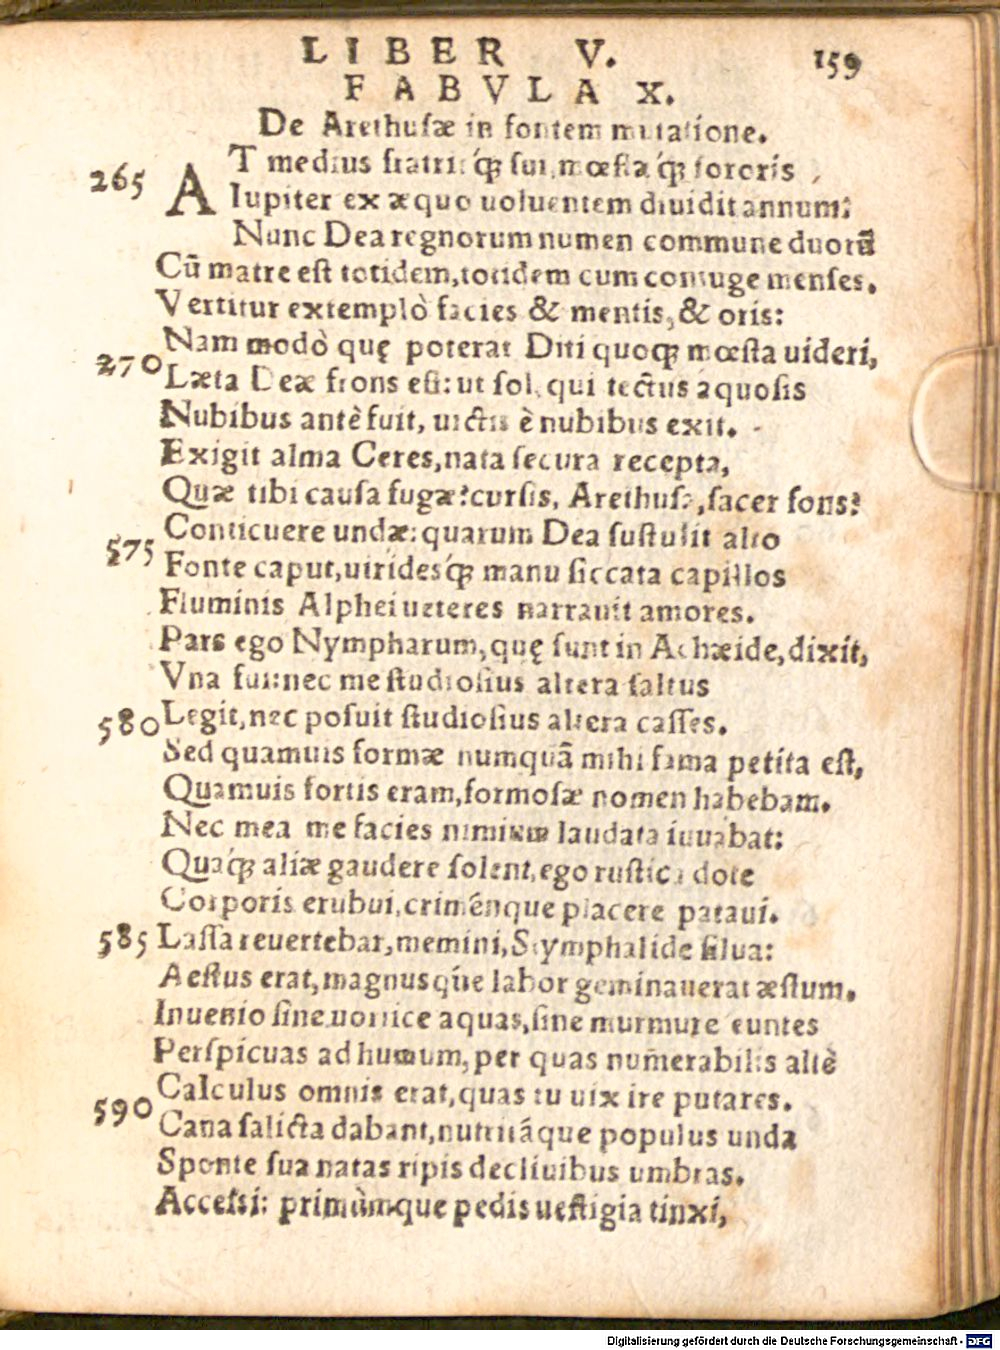 LIBER V. 159
FABVLA X.
De Arethusæ in fontem mutatione.
265 AT medius fratrisq́ꝫ sui, mœstæq́ꝫ sororis
Iupiter ex æquo uoluentem diuidit annum:
Nunc Dea regnorum numen commune duorũ
Cũ matre est totidem, totidem cum coniuge menses.
Vertitur extemplò facies & mentis, & oris:
270 Nam modò quę poterat Diti quoqꝫ mœsta uideri,
Læta Deæ frons est: ut sol, qui tectus aquosis
Nubibus antè fuit, uictis è nubibus exit.
Exigit alma Ceres, nata secura recepta,
Quæ tibi causa fugæ? cur sis, Arethusa, sacer fons?
575 Conticuere undæ: quarum Dea sustulit alto
Fonte caput, uiridesq́ꝫ manu siccata capillos
Fluminis Alphei ueteres narrauit amores.
Pars ego Nympharum, quę sunt in Achæide, dixit,
Vna fui: nec me studiosius altera saltus
580 Legit, nec posuit studiosius altera casses.
Sed quamuis formæ numquã mihi fama petita est,
Quamuis fortis eram, formosæ nomen habebam.
Nec mea me facies nimium laudata iuuabat:
Quaq́ꝫ aliæ gaudere solent, ego rustica dote
Corporis erubui, crimẽnque placere pataui.
585 Lassa reuertebar, memini, Stymphalide silua:
Aestus erat, magnusq́ue labor geminauerat æstum.
Inuenio sine uortice aquas, sine murmure euntes
Perspicuas ad humum, per quas num̃erabilis altè
Calculus omnis erat, quas tu uix ire putares.
590 Cana salicta dabant, nutritáque populus unda
Sponte sua natas ripis decliuibus umbras.
Accessi: primùmque pedis uestigia tinxi,
Digitalisierung gefördert durch die Deutsche Forschungsgemeinschaft - DFG